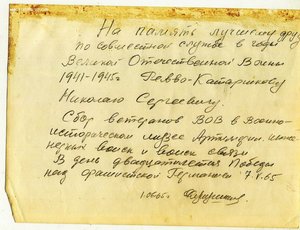 На память лучшему друг
по совместной службе в годы
Великой Отечественной Войны
1941-1945г.
Николаю Сергеевичу.
Сбор ветеранов ВОВ в Военно-
историческом музее Артиллерии. инже
нерных войск и войск связи
В день двадцатилетия Победы
над фашистской Германией 7.V.65